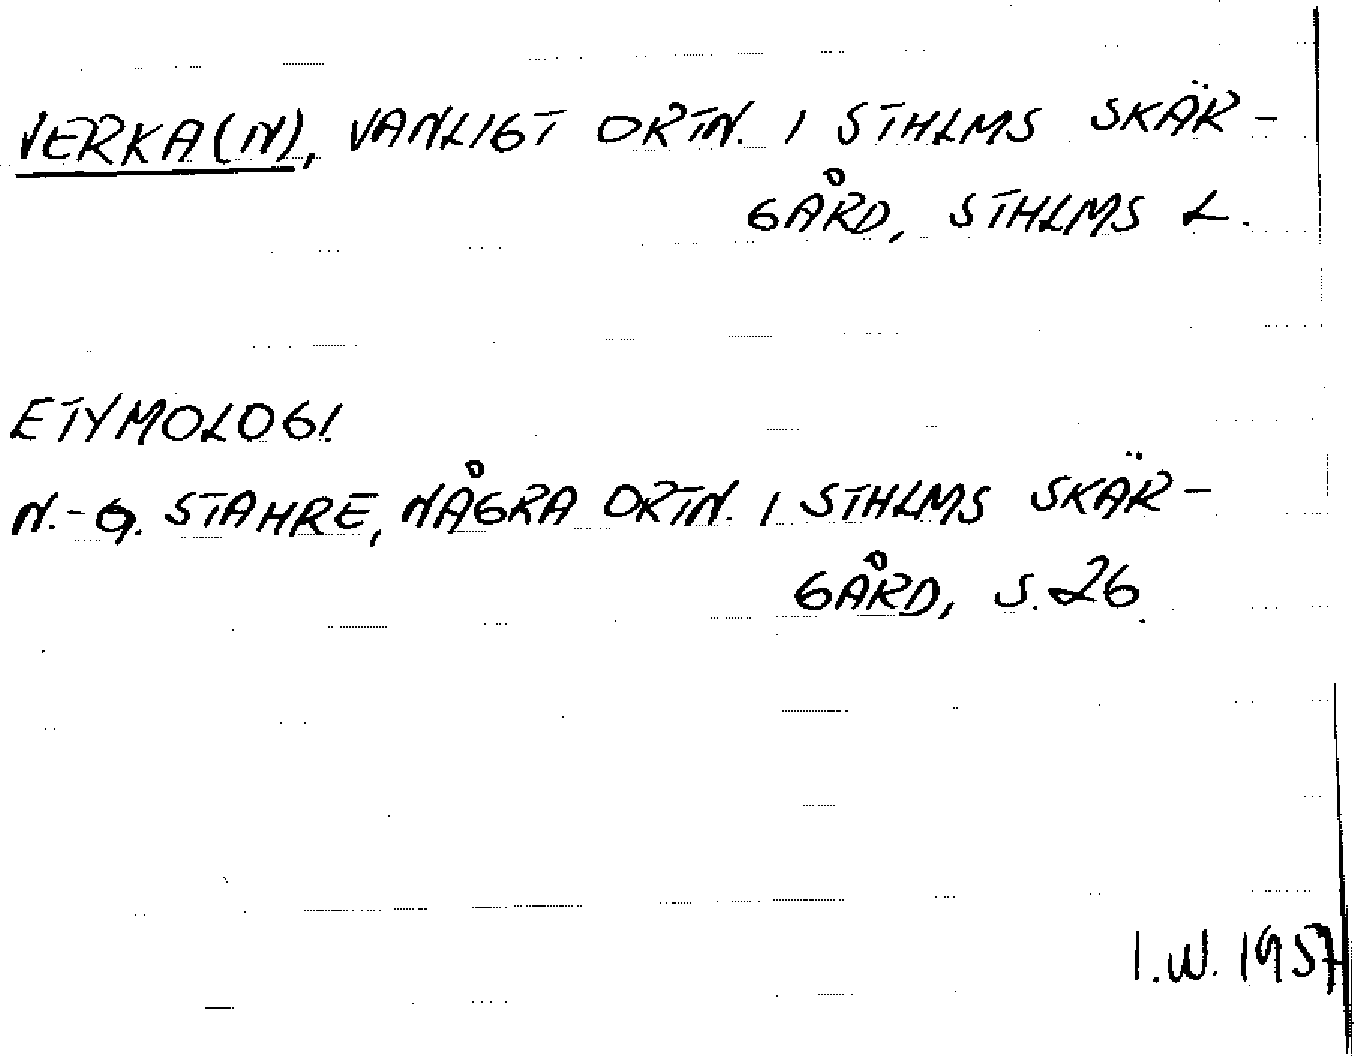 VERKA(N), VANLIGT ORTN. I STHLMS SKÄR-
GÅRD, STHLMS L.
ETYMOLOGI.
N.-G. STAHRE, NÅGRA ORTN. I STHLMS SKÄR-
GÅRD, S. 26.
I.W. 1957